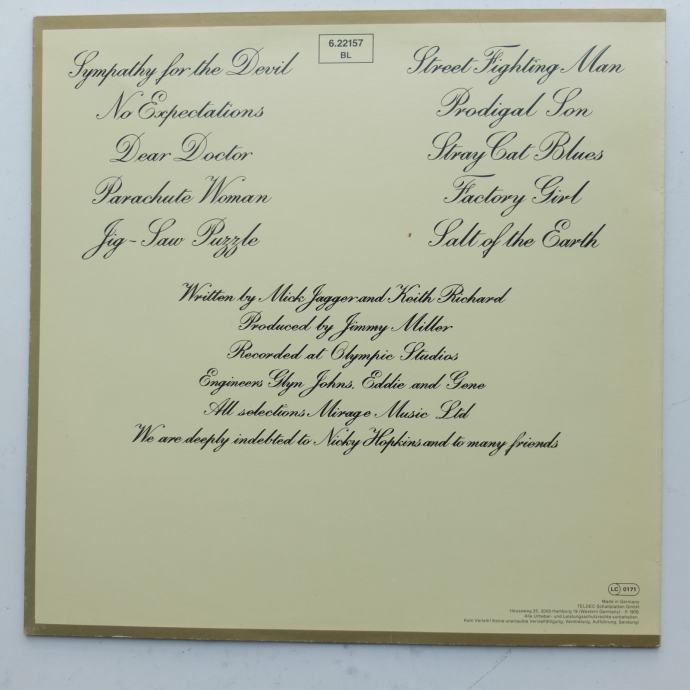 6.22157
BL
Sympathy for the Devil
No Expectations
Dear Doctor
Parachute Woman
Jig-Saw Puzzle
Street Fighting Man
Prodigal Son
Stray Cat Blues
Factory Girl
Salt of the Earth
Written by Mick Jagger and Keith Richard
Produced by Jimmy Miller
Recorded at Olympic Studios
Engineers Glyn Johns, Eddie and Gene
All selections Mirage Music Ltd
We are deeply indebted to Nicky Hopkins and to many friends
LC 0171
Made in Germany
TELDEC Schallplatten GmbH
Heussweg 25, 2000 Hamburg 19 (Western Germany)
Alle Urheber- und Leistungsschutzrechte vorbehalten.
Kein Verleih! Keine unerlaubte Vervielfältigung, Vermietung, Aufführung, Sendung!